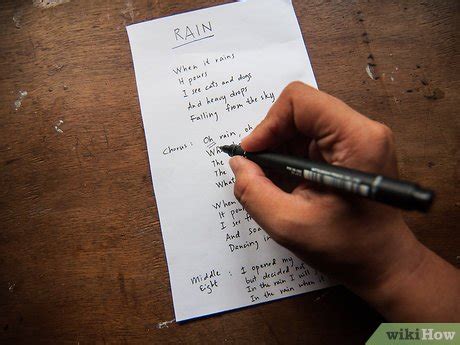 RAIN
When it rains
It pours
I see cats and dogs
And heavy drops
Falling from the sky
Chorus : Oh rain, oh
The
The
When
It pou
I see
And soa
Dancing in
Middle Eight : I opened my
but decided not
In the rain I will
In the rain when
wikiHow